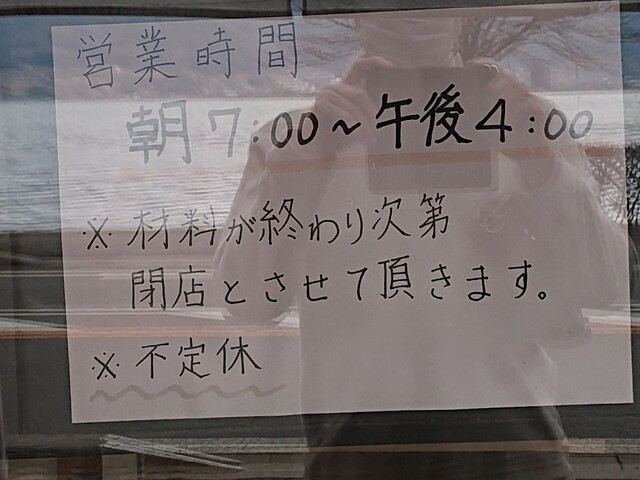 営業時間
朝7:00～午後4:00
※材料が終わり次第
閉店とさせて頂きます。
※不定休